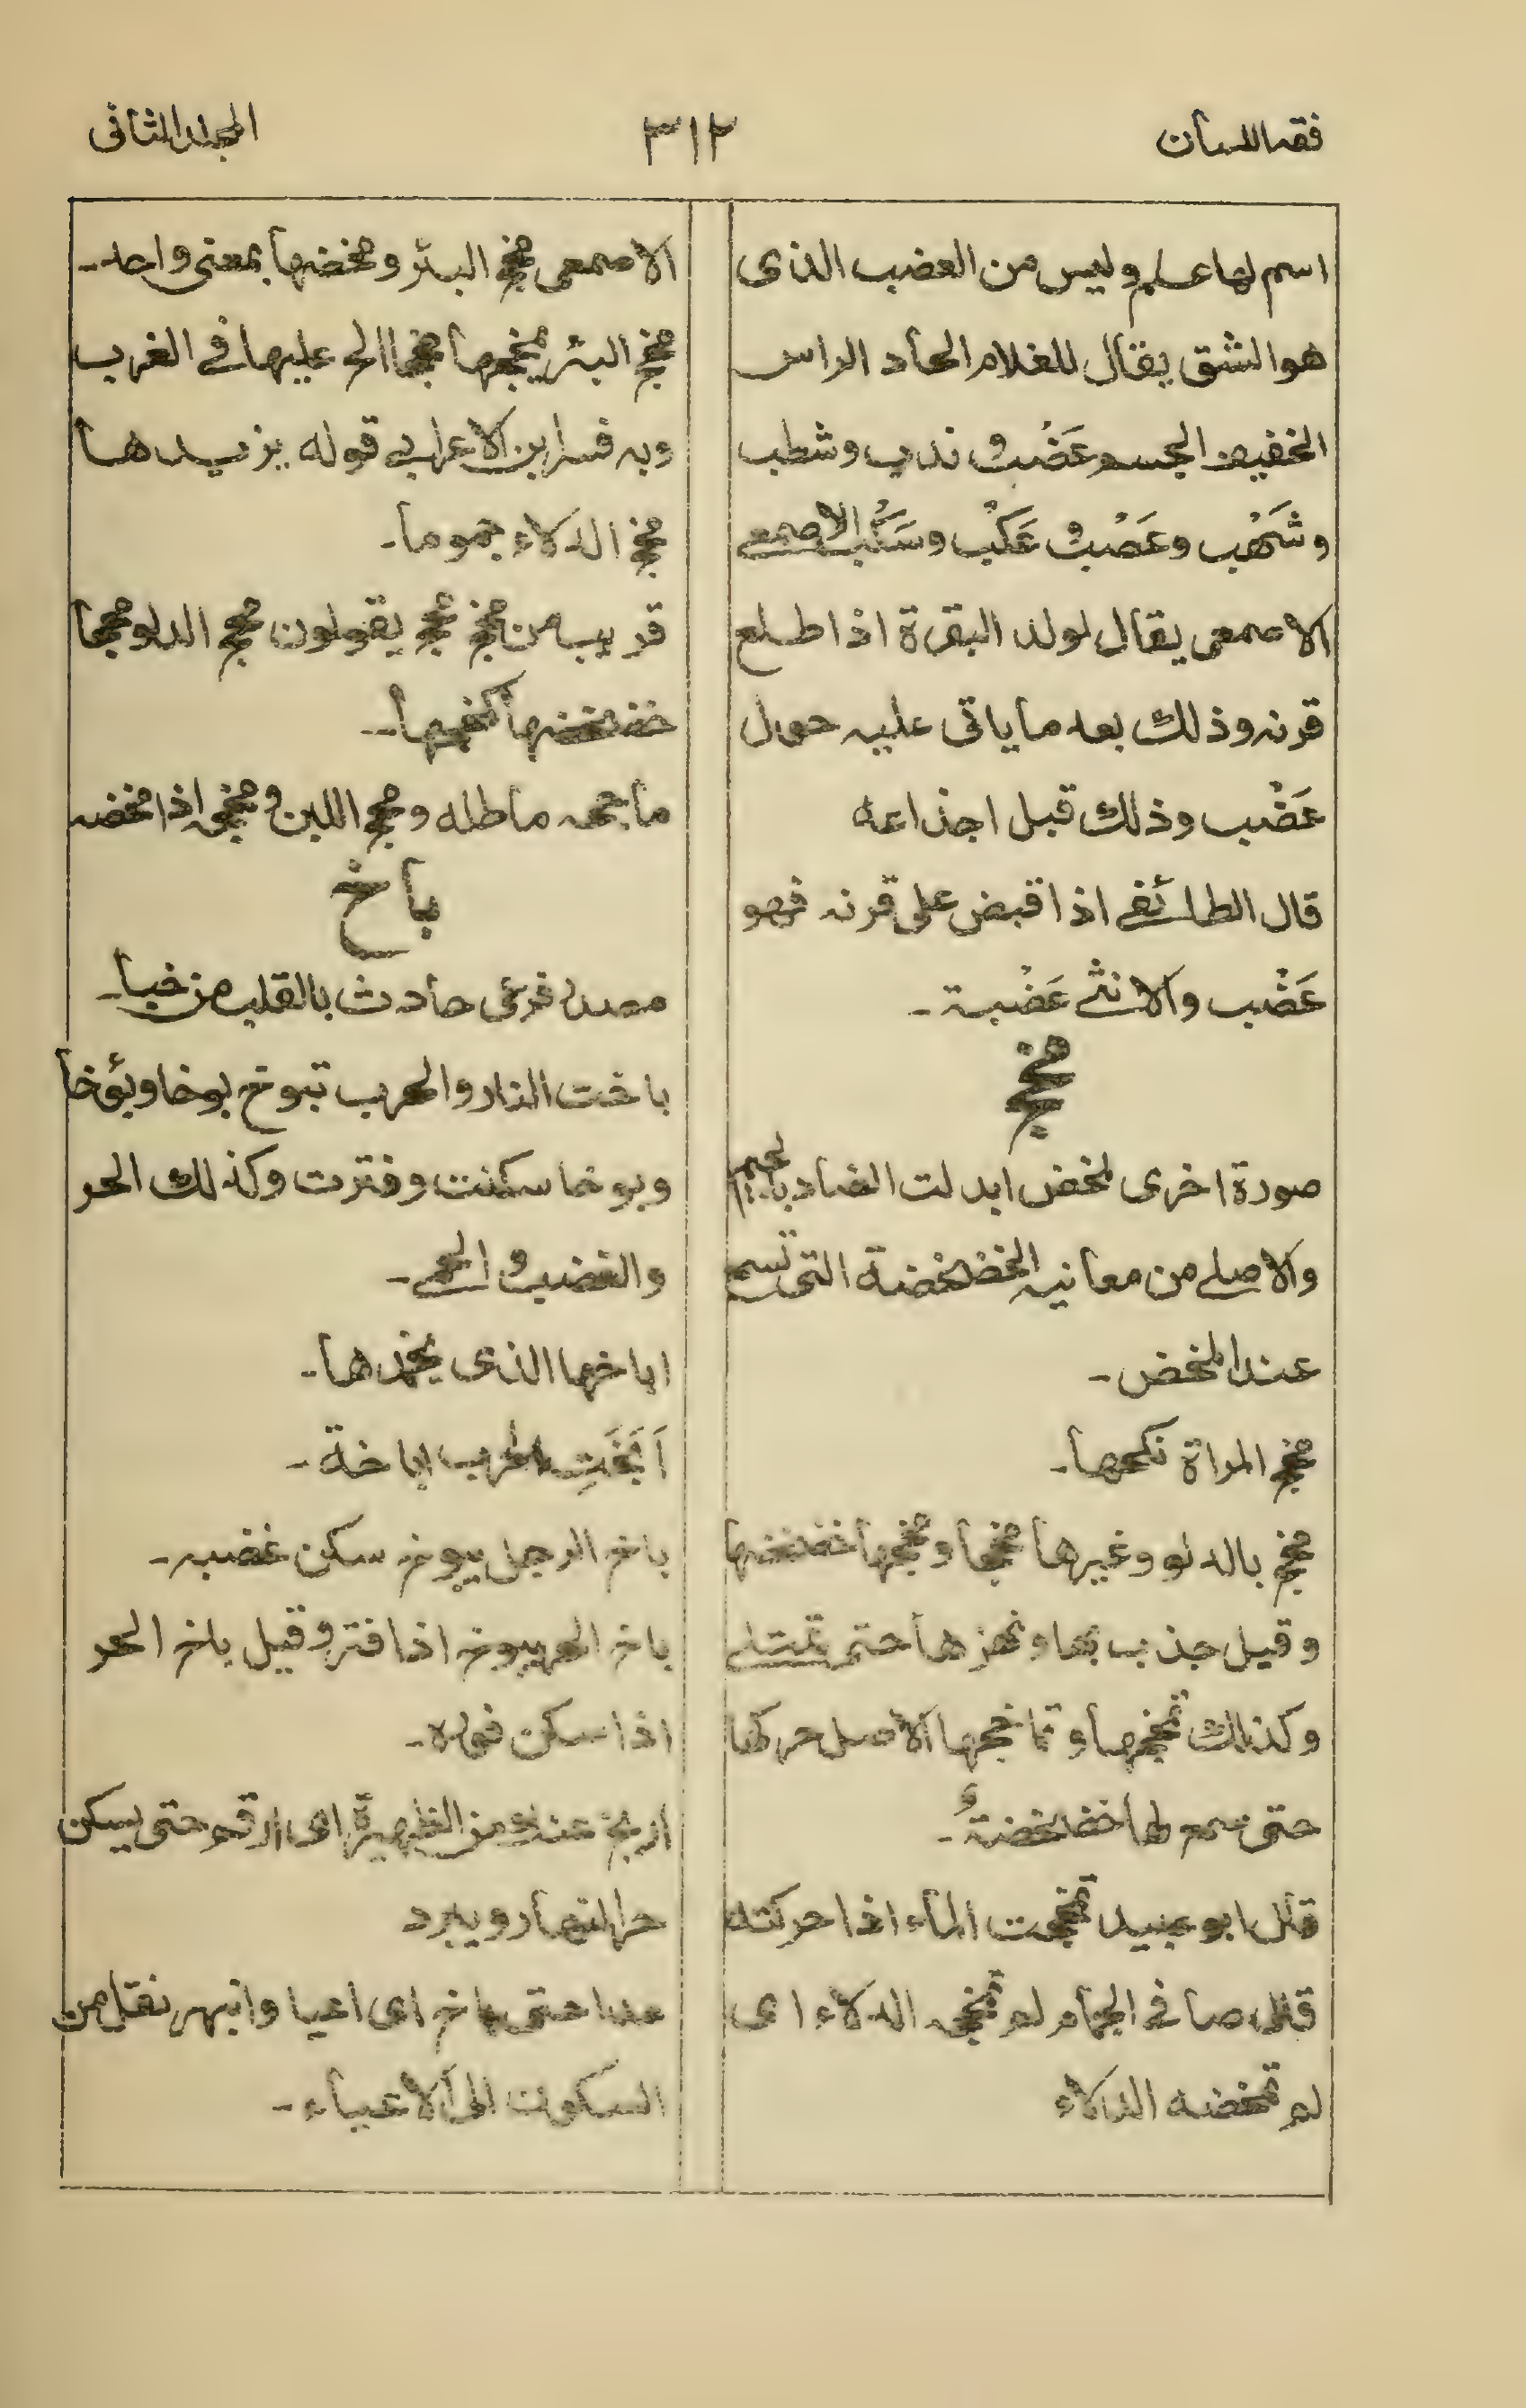 فقه اللسان
٣١٢
المجلد الثانى
اسم لها علم وليس من العضب الذى
هو الشق يقال للغلام الحاد الراس
الخفيف الجسم عَضْبٌ و ندب وشطب
وشَهْب وعَصْبٌ و عَكْب وسَكْب الاصمعى
الاصمعى يقال لولد البقرة اذا طلع
قرنه وذلك بعد ما ياتى عليه حول
عَضْب وذلك قبل اجذاعه
قال الطائفى اذا قبض على قرنه فهو
عَضْب والانثى عَضْبة ـ
مخج
صورة اخرى لمخض ابدلت الضاد بالجيم
والاصلى من معانيه الخضخضة التى تسمع
عند المخض ـ
مخج المراة نكحها ـ
مخج بالدلو وغيرها مخجا و مخجها خضخضها
وقيل جذب بها ونهزها حتى تمتلى
وكذلك تمخجها و تماخجها الاصل حركها
حتى سمع لها خضخضةٌ ـ
قال ابو عبيد تمخجت الماء اذا حركته
قال صافى الجمام لم تمخجه الدلاء اى
لم تمخضه الدلاء
الاصمعى مخج البئر و مخضها بمعنى واحد ـ
مخج البئر يمخجها مخجا الح عليها فى الغرب
وبه فسر ابن الاعرابى قوله يزيدها
مخج الدلاء جموما ـ
قريب من مخج محج يقولون محج الدلو محجا
خضخضها كمخجها ـ
ماحجه ماطله و محج اللبن و مخجه اذا مخضه
باخ
مصدر فرعى حادث بالقلب من خبا ـ
باخت النار والحرب تبوخ بوخا وبؤخا
وبوخا سكنت وفترت وكذلك الحر
والغضب و الحمى ـ
اباخها الذى يخمدها ـ
اَبَخَتِ الحرب اباخة ـ
باخ الرجل يبوخ سكن غضبه ـ
باخ الحر يبوخ اذا فتر و قيل باخ الحر
اذا سكن فوره ـ
اربخ عنك من الظهيرة اى اقم حتى يسكن
حر النهار ويبرد
عدا حتى باخ اى اعيا وانبهر نقل من
السكون الى الاعياء ـ